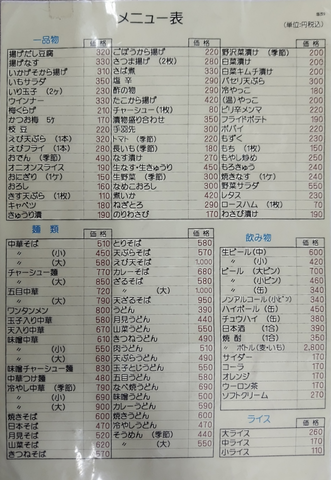 メニュー表
(単位:円税込)
一品物
価格
揚げだし豆腐 320
揚げなす 330
いかげそから揚げ 350
いもサラダ 350
いり玉子 (2ヶ) 230
ウインナー 330
梅くらげ 210
かつお梅 5ヶ 170
枝豆 220
えび天ぷら (1本) 320
えびフライ (1本) 280
おでん (季節) 490
オニオンスライス 190
おにぎり (1ヶ) 160
おろし 160
きす天ぷら (1枚) 110
キャベツ 160
きゅうり漬 190
価格
ごぼうから揚げ 220
さつま揚げ (2枚) 280
さば煮 330
塩辛 290
酢の物 290
たこから揚げ 420
チャーシュー(1枚) 80
漬物盛り合わせ 350
手羽先 300
トマト (季節) 280
長いも(季節) 180
なす漬け 270
生なす・生きゅうり 450
生野菜 (季節) 300
なめこおろし 300
煮いか 420
ねぎとろ 290
のりわさび 170
価格
野沢菜漬け (季節) 200
白菜漬け 200
白菜キムチ漬け 300
パセリ天ぷら 300
冷やっこ 180
(温)やっこ 220
ピリ辛メンマ 220
フライドポテト 190
ポパイ 220
もずく 230
もち (1枚) 150
もやし炒め 250
もろきゅう 240
焼きなす (1ケ) 250
野菜サラダ 550
レタス 230
ロースハム (1枚) 70
わさび漬け 190
麺類
価格
中華そば 610
〃 (小) 450
〃 (大) 580
チャーシュー麺 770
〃 (大) 850
五目中華 720
〃 (大) 790
ワンタンメン 800
玉子入り中華 580
天入り中華 670
味噌中華 610
〃 (小) 550
〃 (大) 680
味噌チャーシュー麺 830
中華つけ麺 480
冷やし中華 (季節) 790
〃 (小) 690
〃 (大) 900
焼きそば 600
日本そば 470
月見そば 520
山菜そば 620
きつねそば 570
価格
とりそば 580
天ぷらそば 570
えび天そば 1,000
カレーそば 680
ざるそば 580
〃 (大) 1,000
天ざるそば 950
うどん 390
月見うどん 440
山菜うどん 550
きつねうどん 490
肉うどん 510
天ぷらうどん 490
玉子とじうどん 550
五目うどん 580
なべ焼うどん 690
味噌うどん 500
カレーうどん 600
焼うどん 600
冷やしうどん 450
そうめん (季節) 440
〃 (大) 550
飲み物
価格
生ビール(中) 600
〃 (小) 420
ビール (大ビン) 700
〃 (小ビン) 460
〃 (缶) 340
ノンアルコール(小ビン) 340
ハイボール (缶) 450
チュウハイ (缶) 380
日本酒 (1合) 390
焼酎 (1合) 350
〃 ボトル(麦・いも) 2,800
サイダー 170
コーラ 170
オレンジ 170
ウーロン茶 170
ソフトクリーム 270
ライス
価格
大ライス 260
中ライス 170
小ライス 110